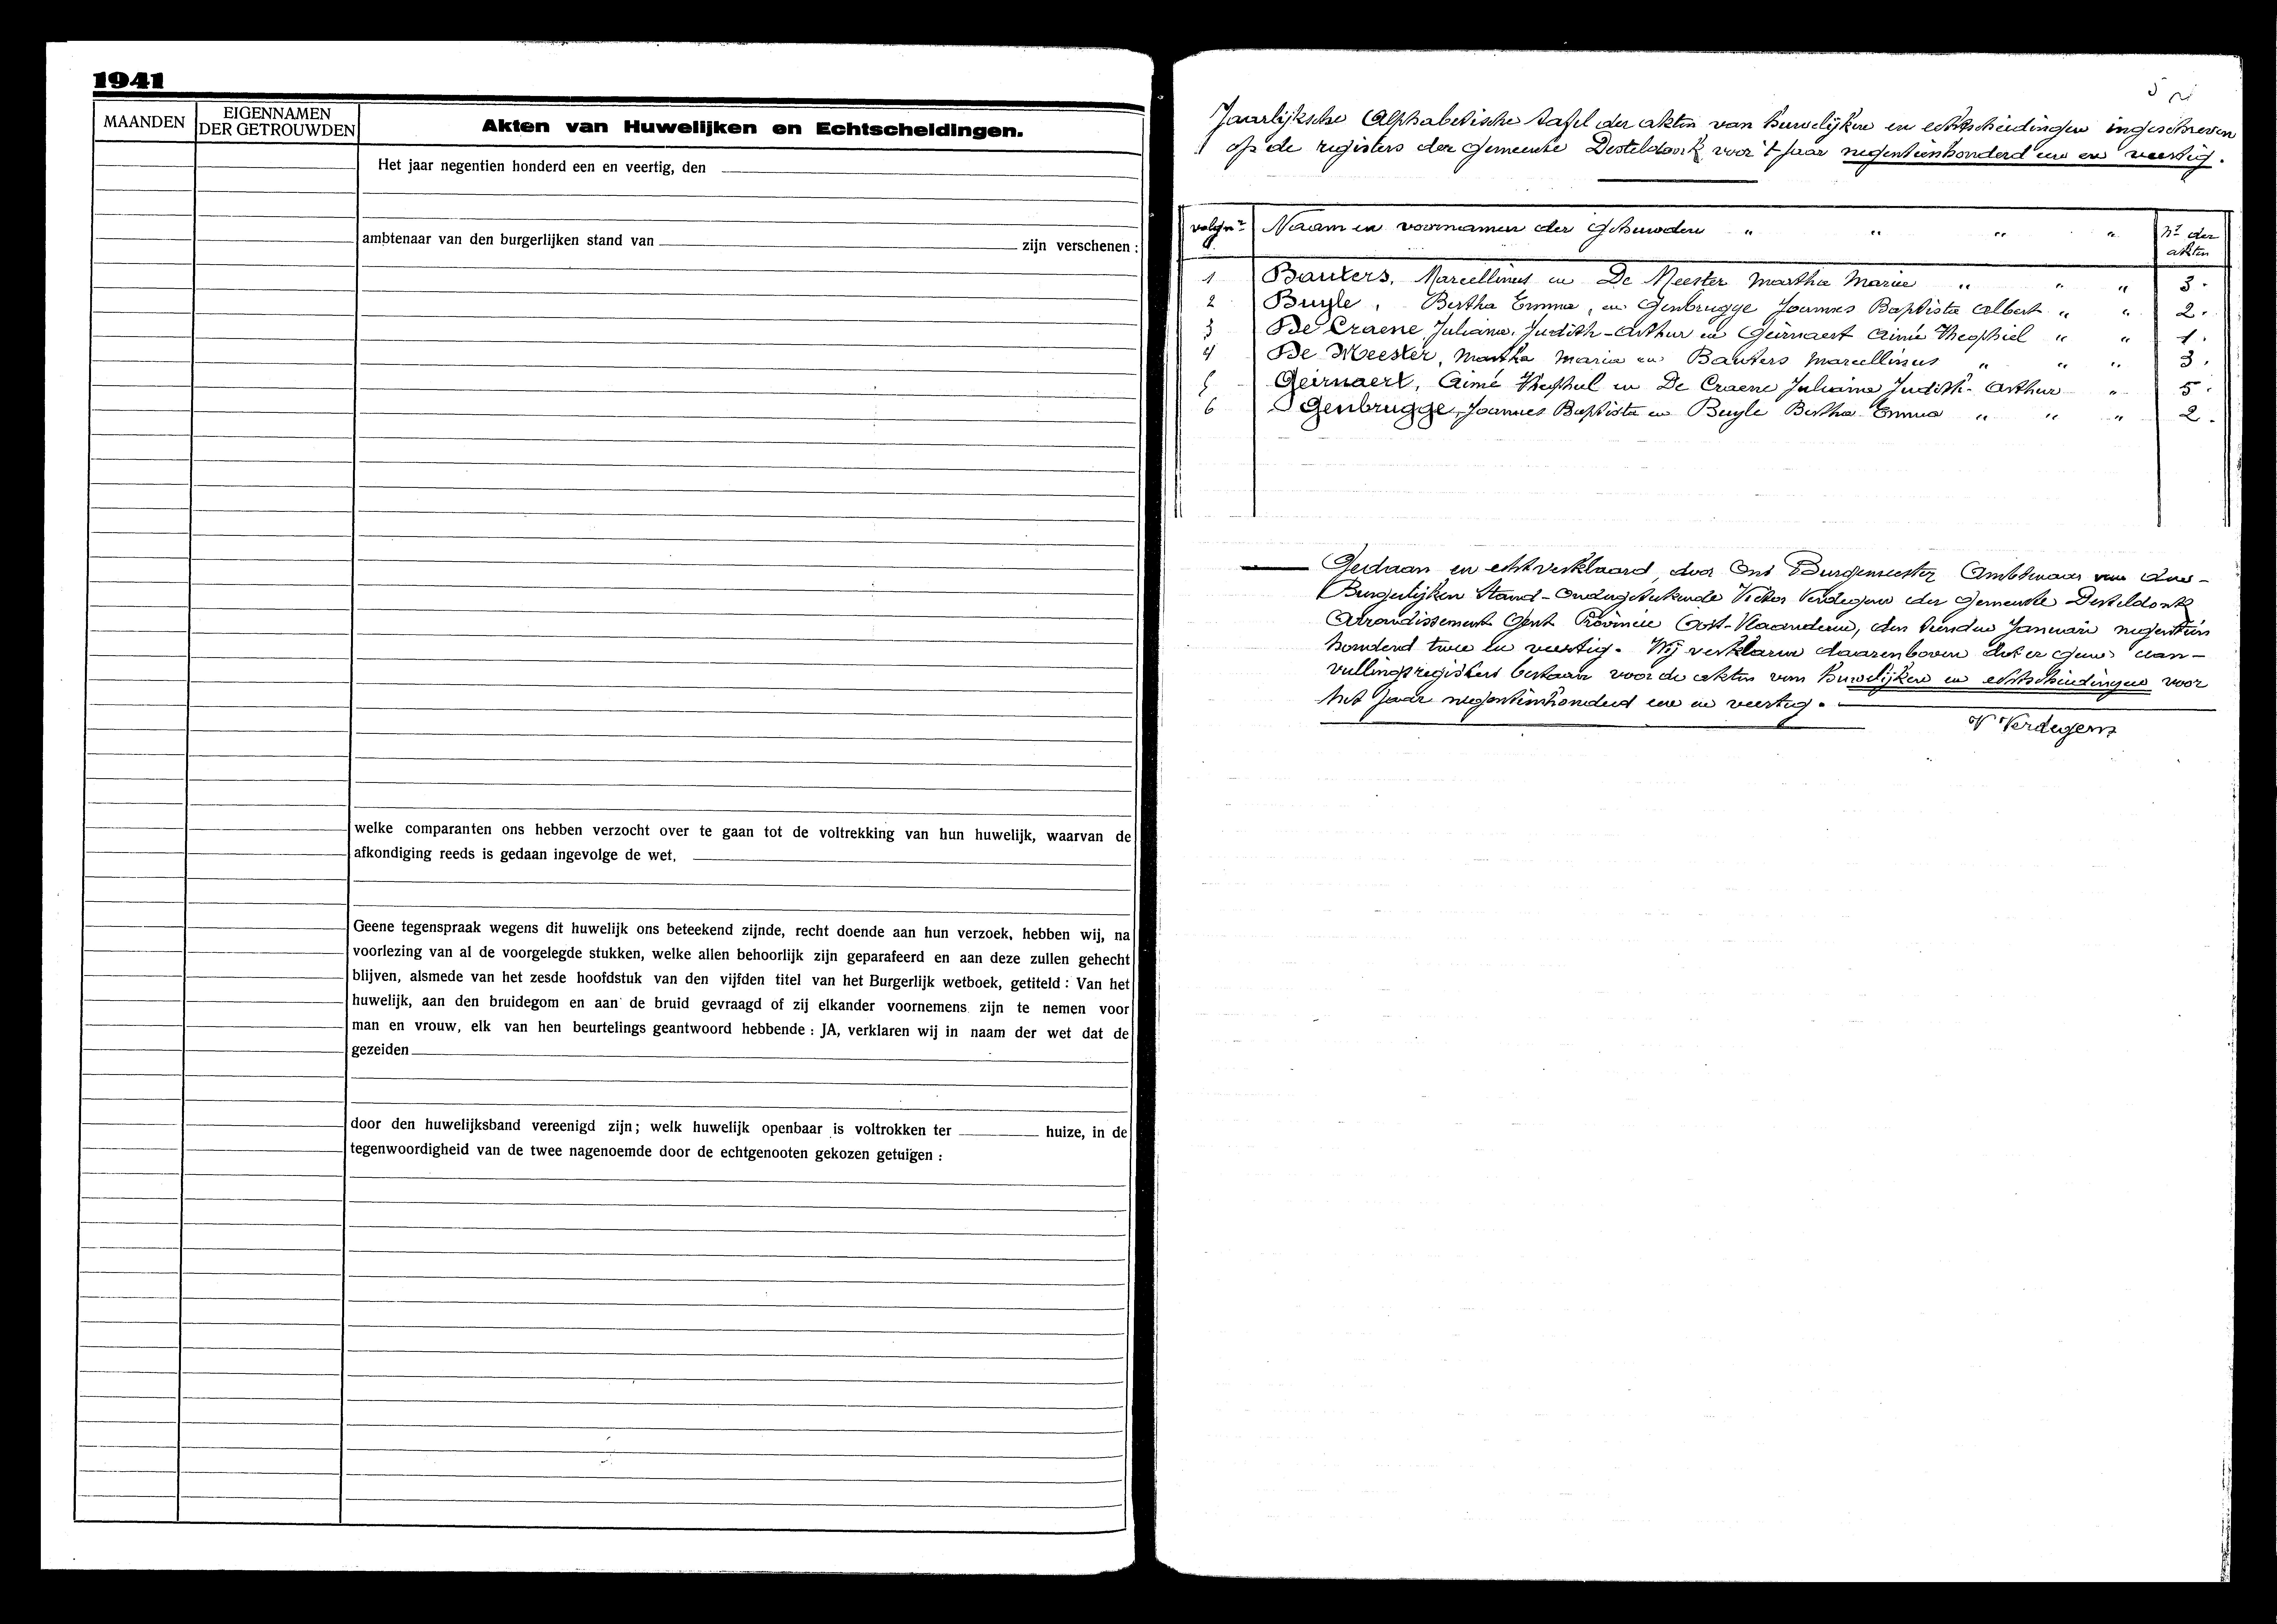 1941
MAANDEN
EIGENNAMEN
DER GETROUWDEN
Akten van Huwelijken en Echtscheidingen.
Het jaar negentien honderd een en veertig, den
ambtenaar van den burgerlijken stand van zijn verschenen :
welke comparanten ons hebben verzocht over te gaan tot de voltrekking van hun huwelijk, waarvan de
afkondiging reeds is gedaan ingevolge de wet.
Geene tegenspraak wegens dit huwelijk ons beteekend zijnde, recht doende aan hun verzoek, hebben wij, na
voorlezing van al de voorgelegde stukken, welke allen behoorlijk zijn geparafeerd en aan deze zullen gehecht
blijven, alsmede van het zesde hoofdstuk van den vijfden titel van het Burgerlijk wetboek, getiteld : Van het
huwelijk, aan den bruidegom en aan de bruid gevraagd of zij elkander voornemens zijn te nemen voor
man en vrouw, elk van hen beurtelings geantwoord hebbende : JA, verklaren wij in naam der wet dat de
gezeiden
door den huwelijksband vereenigd zijn; welk huwelijk openbaar is voltrokken ter huize, in de
tegenwoordigheid van de twee nagenoemde door de echtgenooten gekozen getuigen :
5
Jaarlijksche Alphabetische tafel der akten van huwelijken en echtscheidingen ingeschreven
op de registers der gemeente Desteldonk voor 't jaar negentienhonderd een en veertig.
volgnr Naam en voornamen der gehuwden " " " " Nr der akten
1 Bauters, Marcellinus en De Meester Martha Maria " " " 3.
2 Buyle, Bertha Emma, en Genbrugge Joannes Baptista Albert " " 2.
3 De Craene Juliana, Judith-Arthur en Geirnaert Aimé Theophiel " " 1.
4 De Meester, Martha Maria en Bauters Marcellinus " " " 3.
5 Geirnaert, Aimé Theophiel en De Craene Juliana Judith-Arthur " 5.
6 Genbrugge, Joannes Baptista en Buyle Bertha-Emma " " " 2.
Gedaan en echt verklaard, door Ons Burgemeester Ambtenaar van den-
Burgerlijken Stand-Ondergeteekende Victor Verdegem der gemeente Desteldonk
Arrondissement Gent Provincie Oost-Vlaanderen, den tienden Januari negentien
honderd twee en veertig. Wij verklaren daarenboven dat er geen aan-
vullingsregisters bestaan voor de akten van huwelijken en echtscheidingen voor
het jaar negentienhonderd een en veertig.
V Verdegem